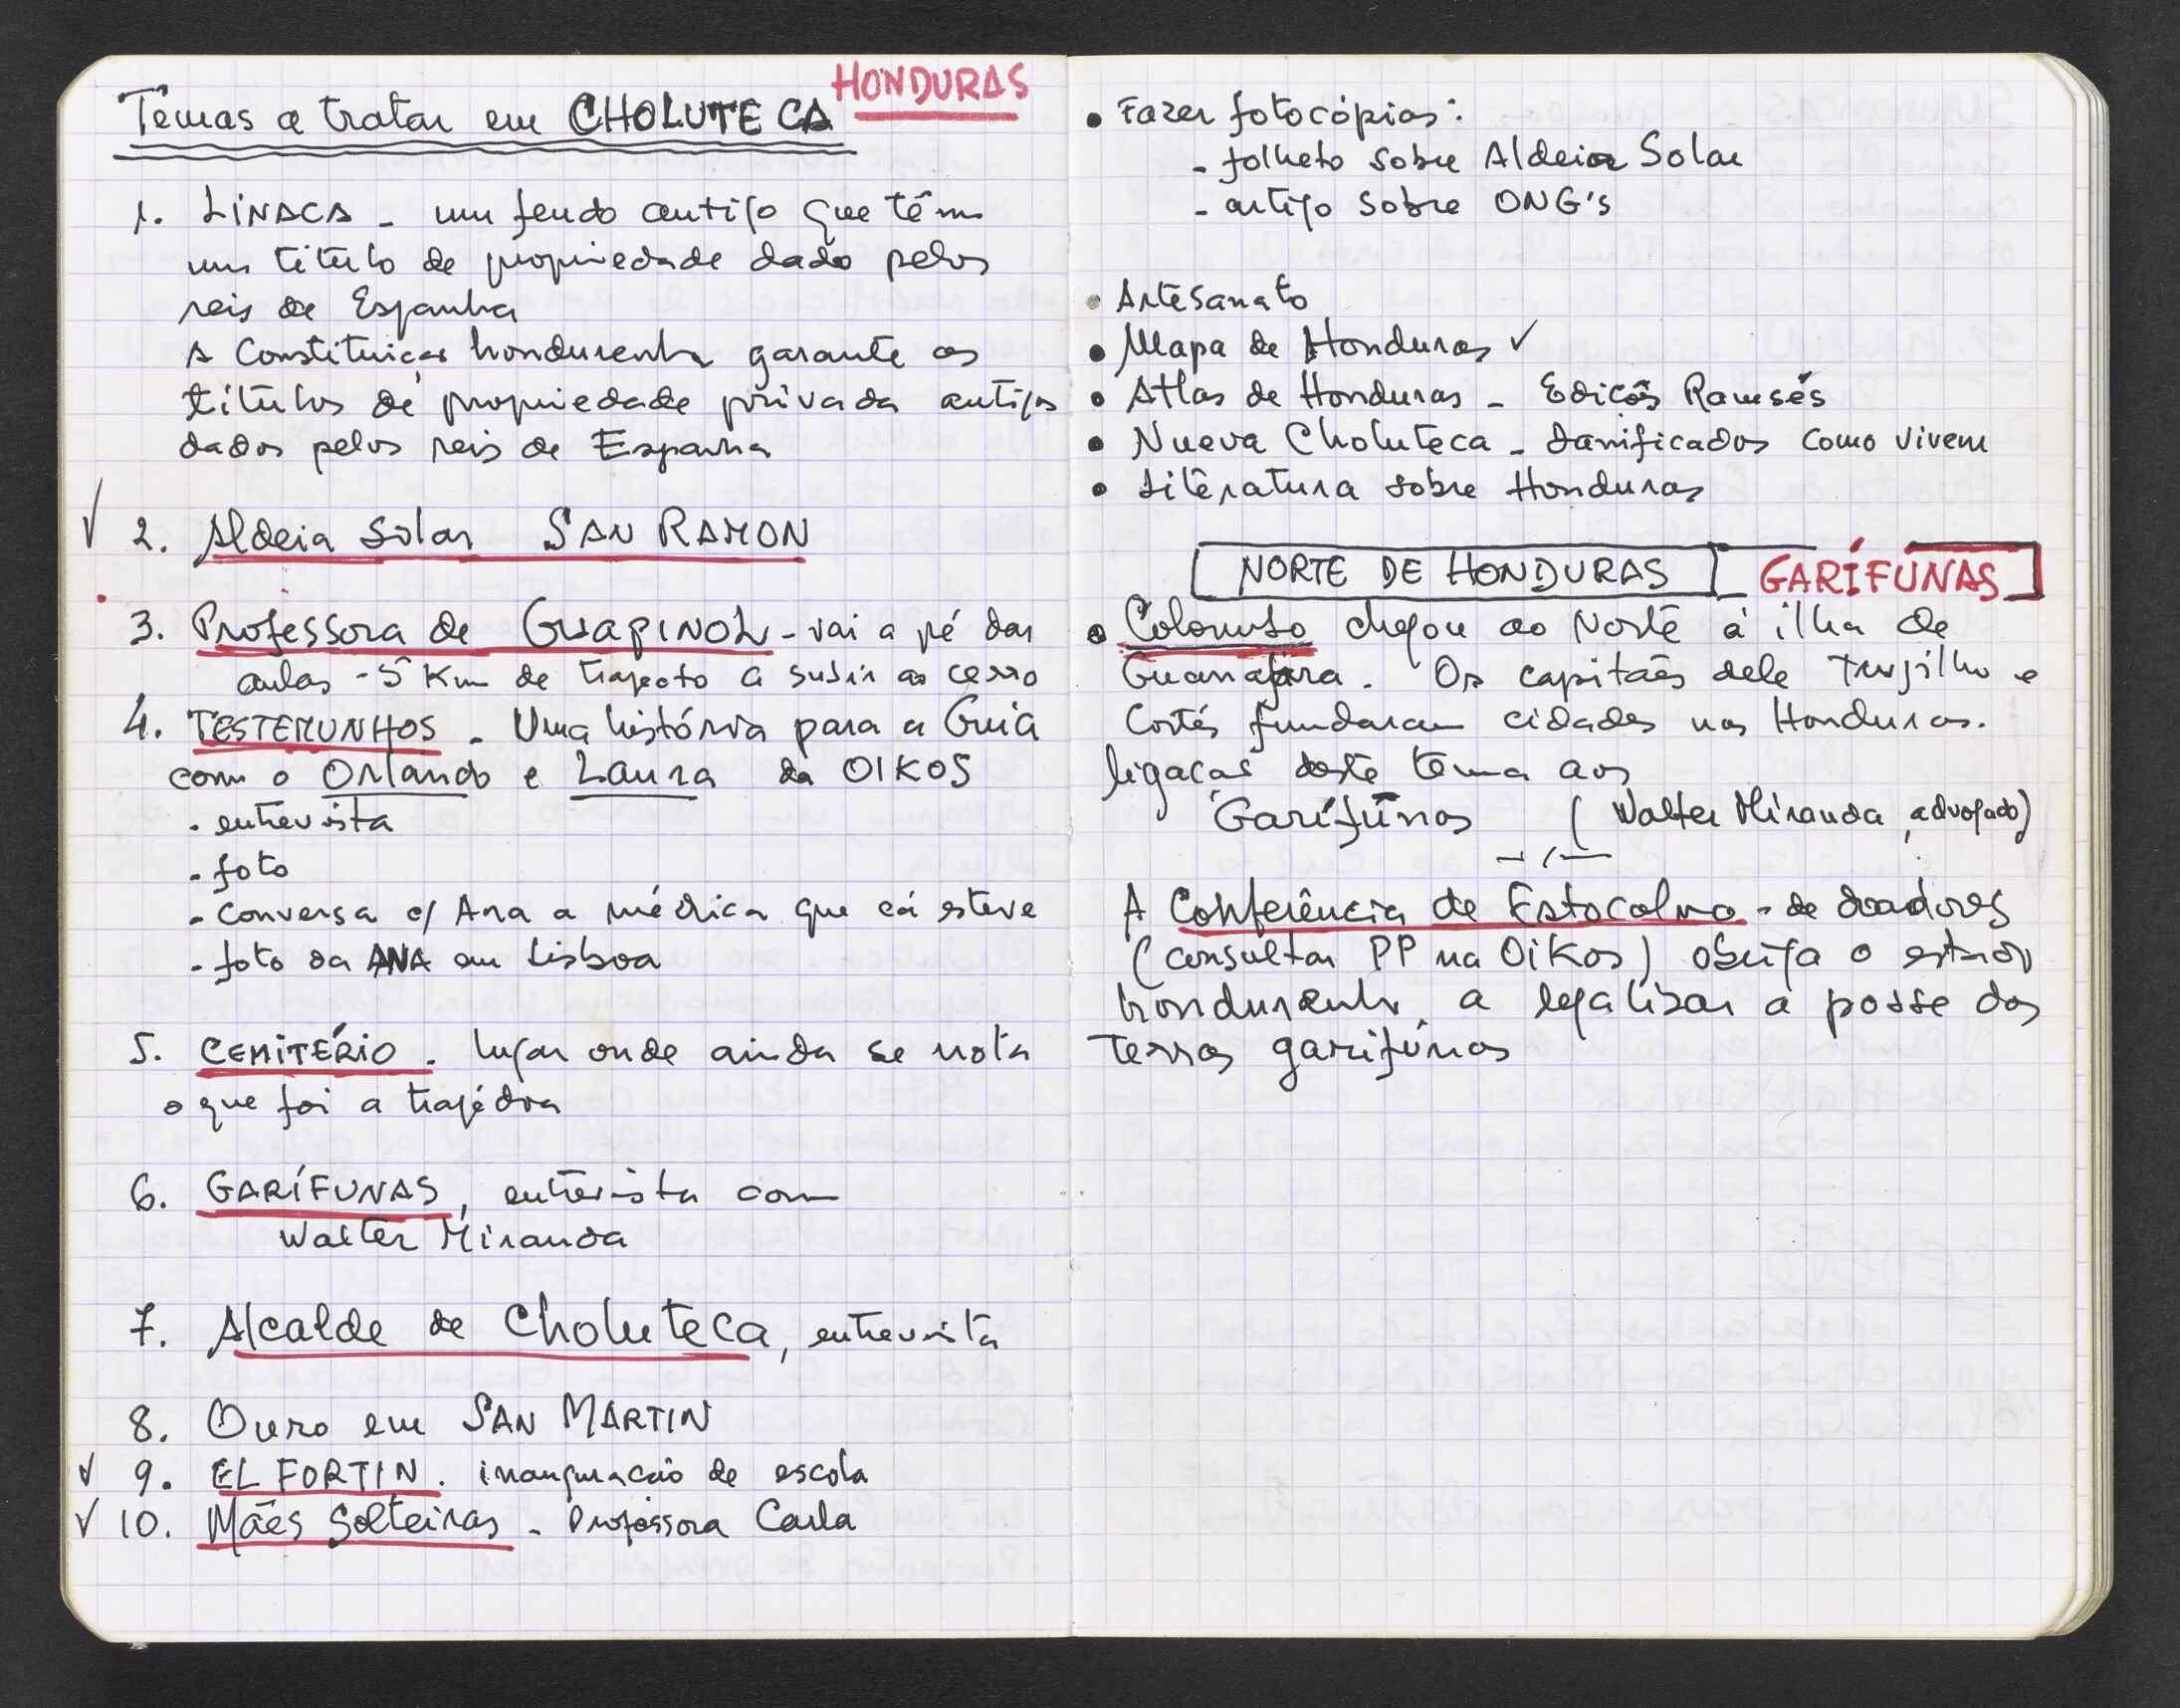 Temas a tratar em CHOLUTECA HONDURAS
1. LINACA - um feudo antigo que têm
um titulo de propriedade dado pelos
reis de Espanha
A Constituição hondurenha garante os
titulos de propriedade privada antigos
dados pelos reis de Espanha
✓ 2. Aldeia Solar SAN RAMON
3. Professora de GUAPINOL - vai a pé dar
aulas - 5 Km de trajecto a subir ao cerro
4. TESTEMUNHOS - Uma história para a Guia
com o Orlando e Laura da OIKOS
- entrevista
- foto
- conversa c/ Ana a médica que cá esteve
- foto da ANA em Lisboa
5. CEMITÉRIO - lugar onde ainda se nota
o que foi a tragédia
6. GARÍFUNAS, entrevista com
Walter Miranda
7. Alcalde de Choluteca, entrevista
8. Ouro em SAN MARTIN
✓ 9. EL FORTIN - inauguração de escola
✓ 10. Mães Solteiras - Professora Carla
• Fazer fotocópias:
- folheto sobre Aldeia Solar
- artigo sobre ONG's
• Artesanato
• Mapa de Honduras ✓
• Atlas de Honduras - Edições Ramsés
• Nueva Choluteca - danificados como vivem
• Literatura sobre Honduras
NORTE DE HONDURAS GARÍFUNAS
• Colombo chegou ao Norte à ilha de
Os capitães dele Trujilho e
Cortés fundaram cidades nas Honduras.
ligação deste tema aos
Garífunas (Walter Miranda, advogado)
-/-
A Conferência de Estocolmo - de doadores
(consultar PP na OiKos) obriga o estado
hondurenho a legalizar a posse das
terras garifúnas